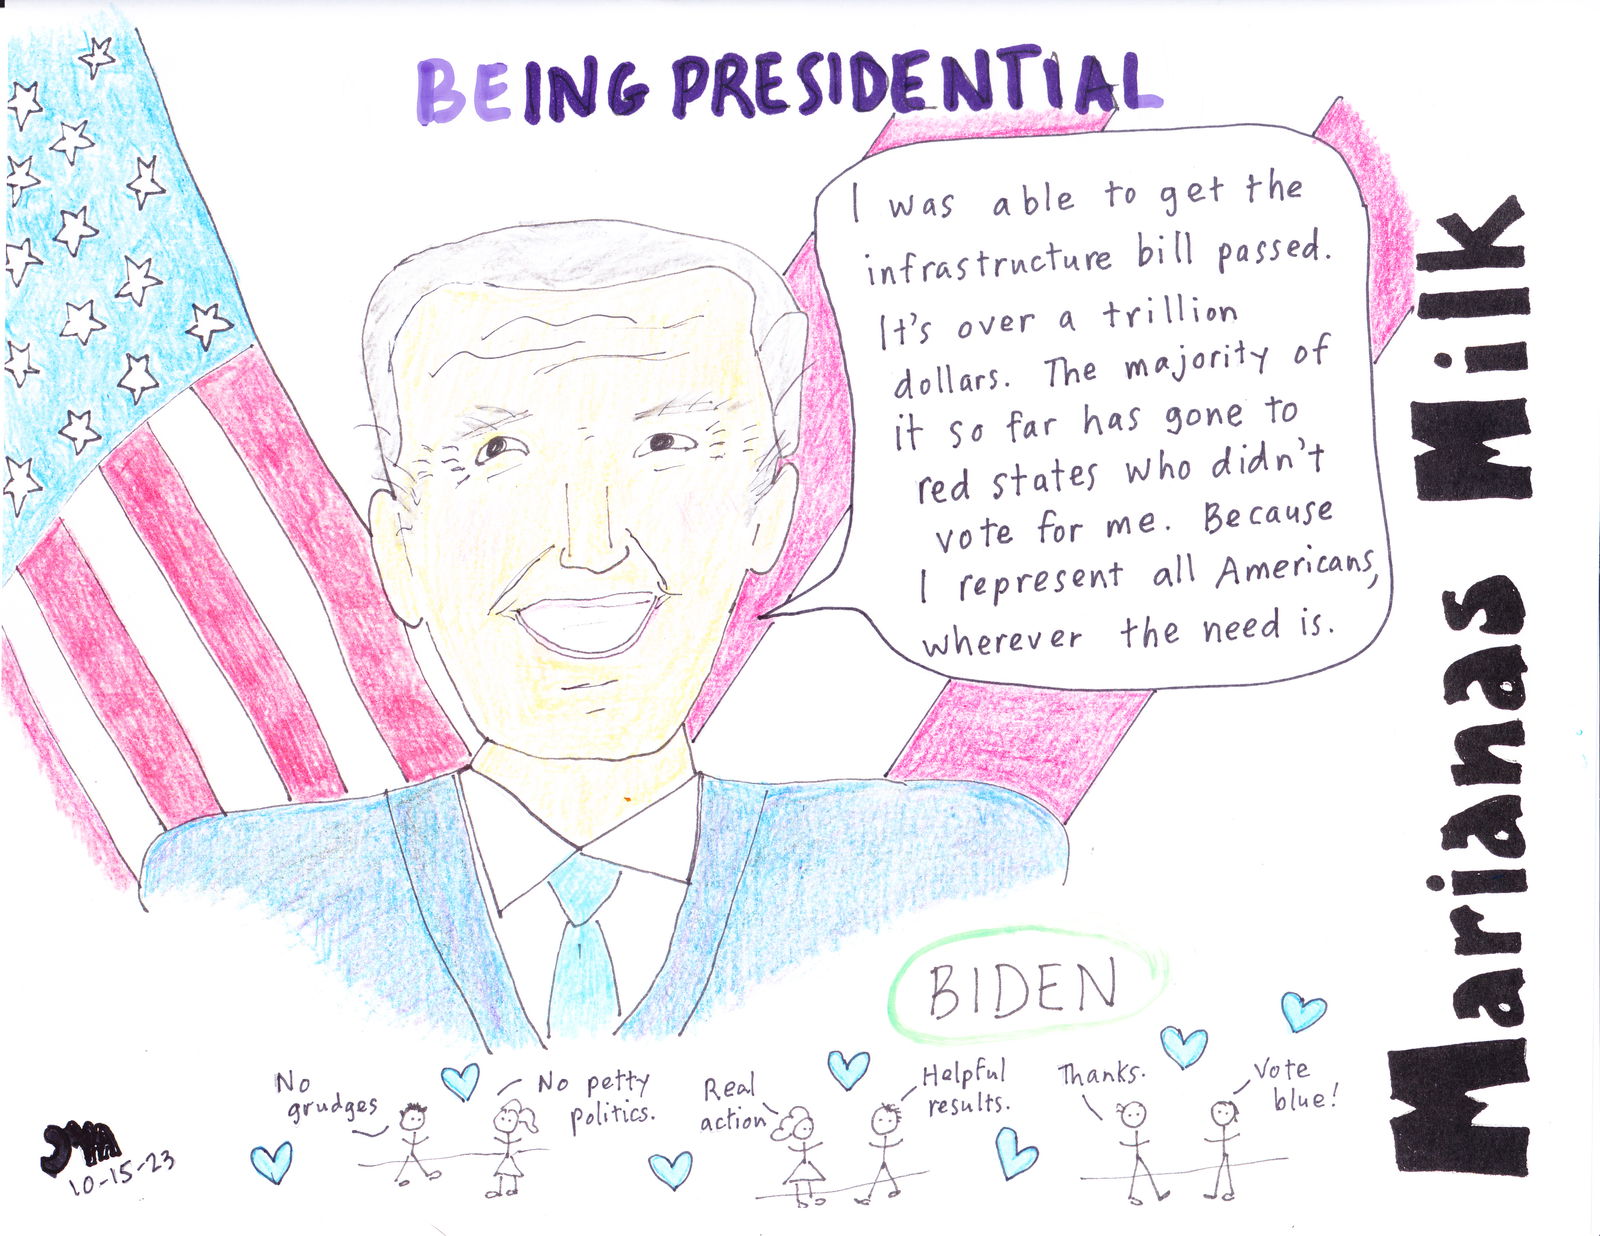 BEING PRESIDENTIAL
I was able to get the
infrastructure bill passed.
It's over a trillion
dollars. The majority of
it so far has gone to
red states who didn't
vote for me. Because
I represent all Americans,
wherever the need is.
Marianas Milk
BIDEN
No
grudges
No petty
politics.
Real
action
Helpful
results.
Thanks.
Vote
blue!
JMA
10-15-23